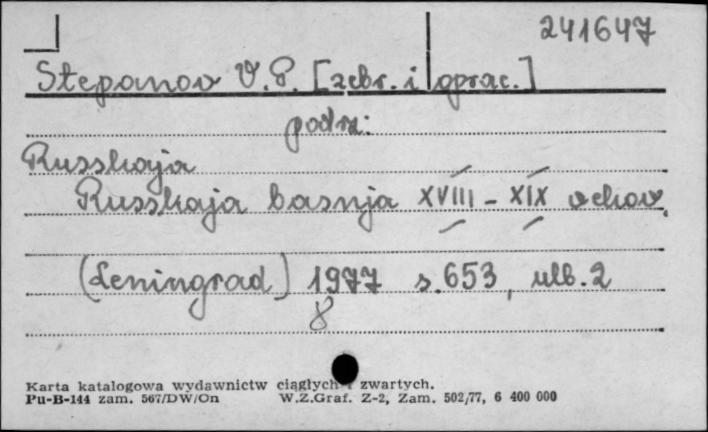 241647
Stepanov V.P. [zebr. i oprac.]
podrz:
Russkaja
Russkaja basnja XVIII - XIX vekov.
(Leningrad) 1977 s. 653, ulb. 2
8
Karta katalogowa wydawnictw ciągłych i zwartych.
Pu-B-144 zam. 567/DW/On W.Z.Graf. Z-2, Zam. 502/77, 6 400 000